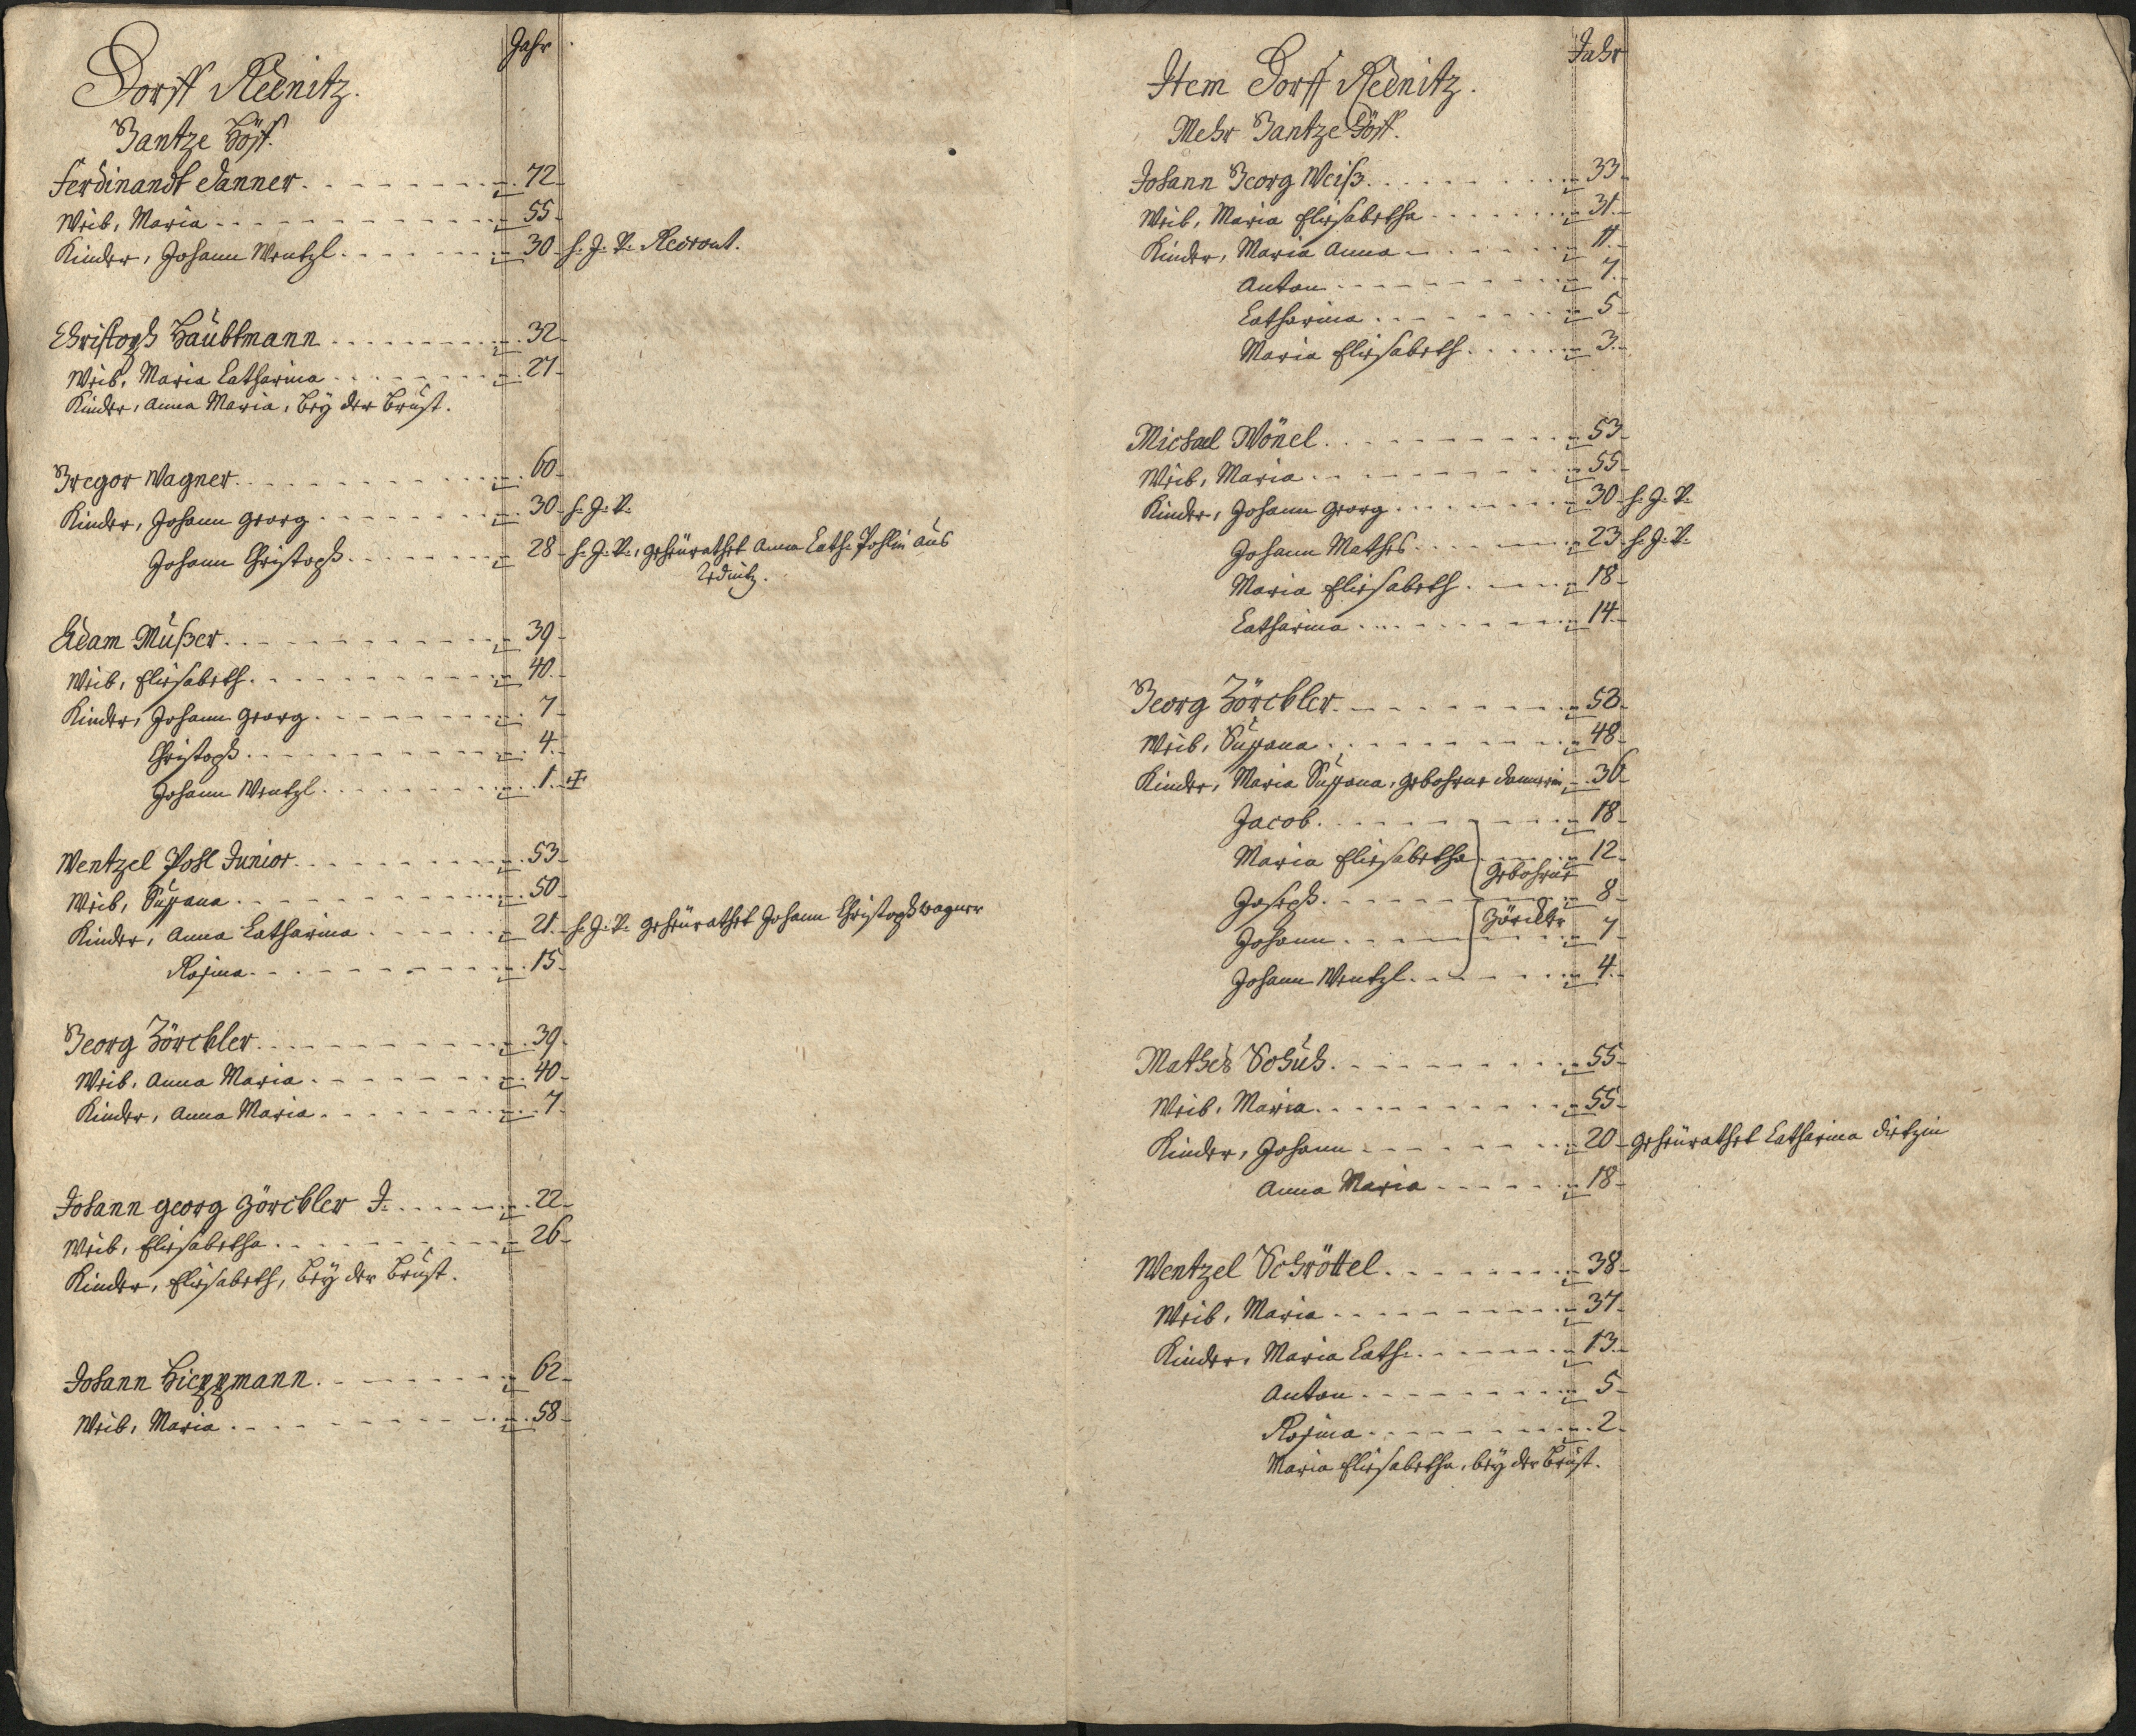 Jahr
Dorff Rednitz.
Gantze Höff.
Ferdinandt Danner. 72
Weib, Maria 55
Kinder, Johann Wentzl. 30 h. J. V. Recrout.
Christoph Haubtmann 32
Weib, Maria Catharina 27
Kinder, Anna Maria, bey der Brust.
Gregor Wagner. 60
Kinder, Johann Georg 30 h. J. V.
Johann Christoph. 28 h. J. V., geheurathet Anna Cath. Pohlin aus
Rednitz.
Adam Mußer. 39
Weib, Elisabeth. 40
Kinder, Johann Georg. 7
Christoph. 4
Johann Wentzl. 1
Wentzel Pohl Junior. 53
Weib, Susana 50
Kinder, Anna Catharina 21 h. J. V. geheurathet Johann Christoph Wagner
Rosina. 15
Georg Zörckler. 39
Weib, Anna Maria. 40
Kinder, Anna Maria. 7
Johann Georg Zörckler J. 22
Weib, Elisabetha. 26
Kinder, Elisabeth, bey der Brust.
Johann Hieppmann. 62
Weib, Maria 58
Jahr
Item Dorff Rednitz.
Mehr Gantze Höff.
Johann Georg Weiß. 33
Weib, Maria Elisabetha 31
Kinder, Maria Anna 11
Anton 7
Catharina 5
Maria Elisabeth. 3
Michael Wönel. 53
Weib, Maria 55
Kinder, Johann Georg 30 h. J. V.
Johann Mathes 23 h. J. V.
Maria Elisabeth. 18
Catharina 14
Georg Zörckler. 53
Weib, Susana. 48
Kinder, Maria Susana, gebohrne Dannerin 36
Jacob. 18
Maria Elisabetha 12
gebohrne
Joseph. 8
Zörckler
Johann. 7
Johann Wentzl. 4
Mathes Schuh. 55
Weib, Maria. 55
Kinder, Johann 20 geheurathet Catharina Dietzin
Anna Maria 18
Wentzel Schröttel. 38
Weib, Maria 37
Kinder, Maria Cath. 13
Anton 5
Rosina. 2
Maria Elisabetha, bey der Brust.